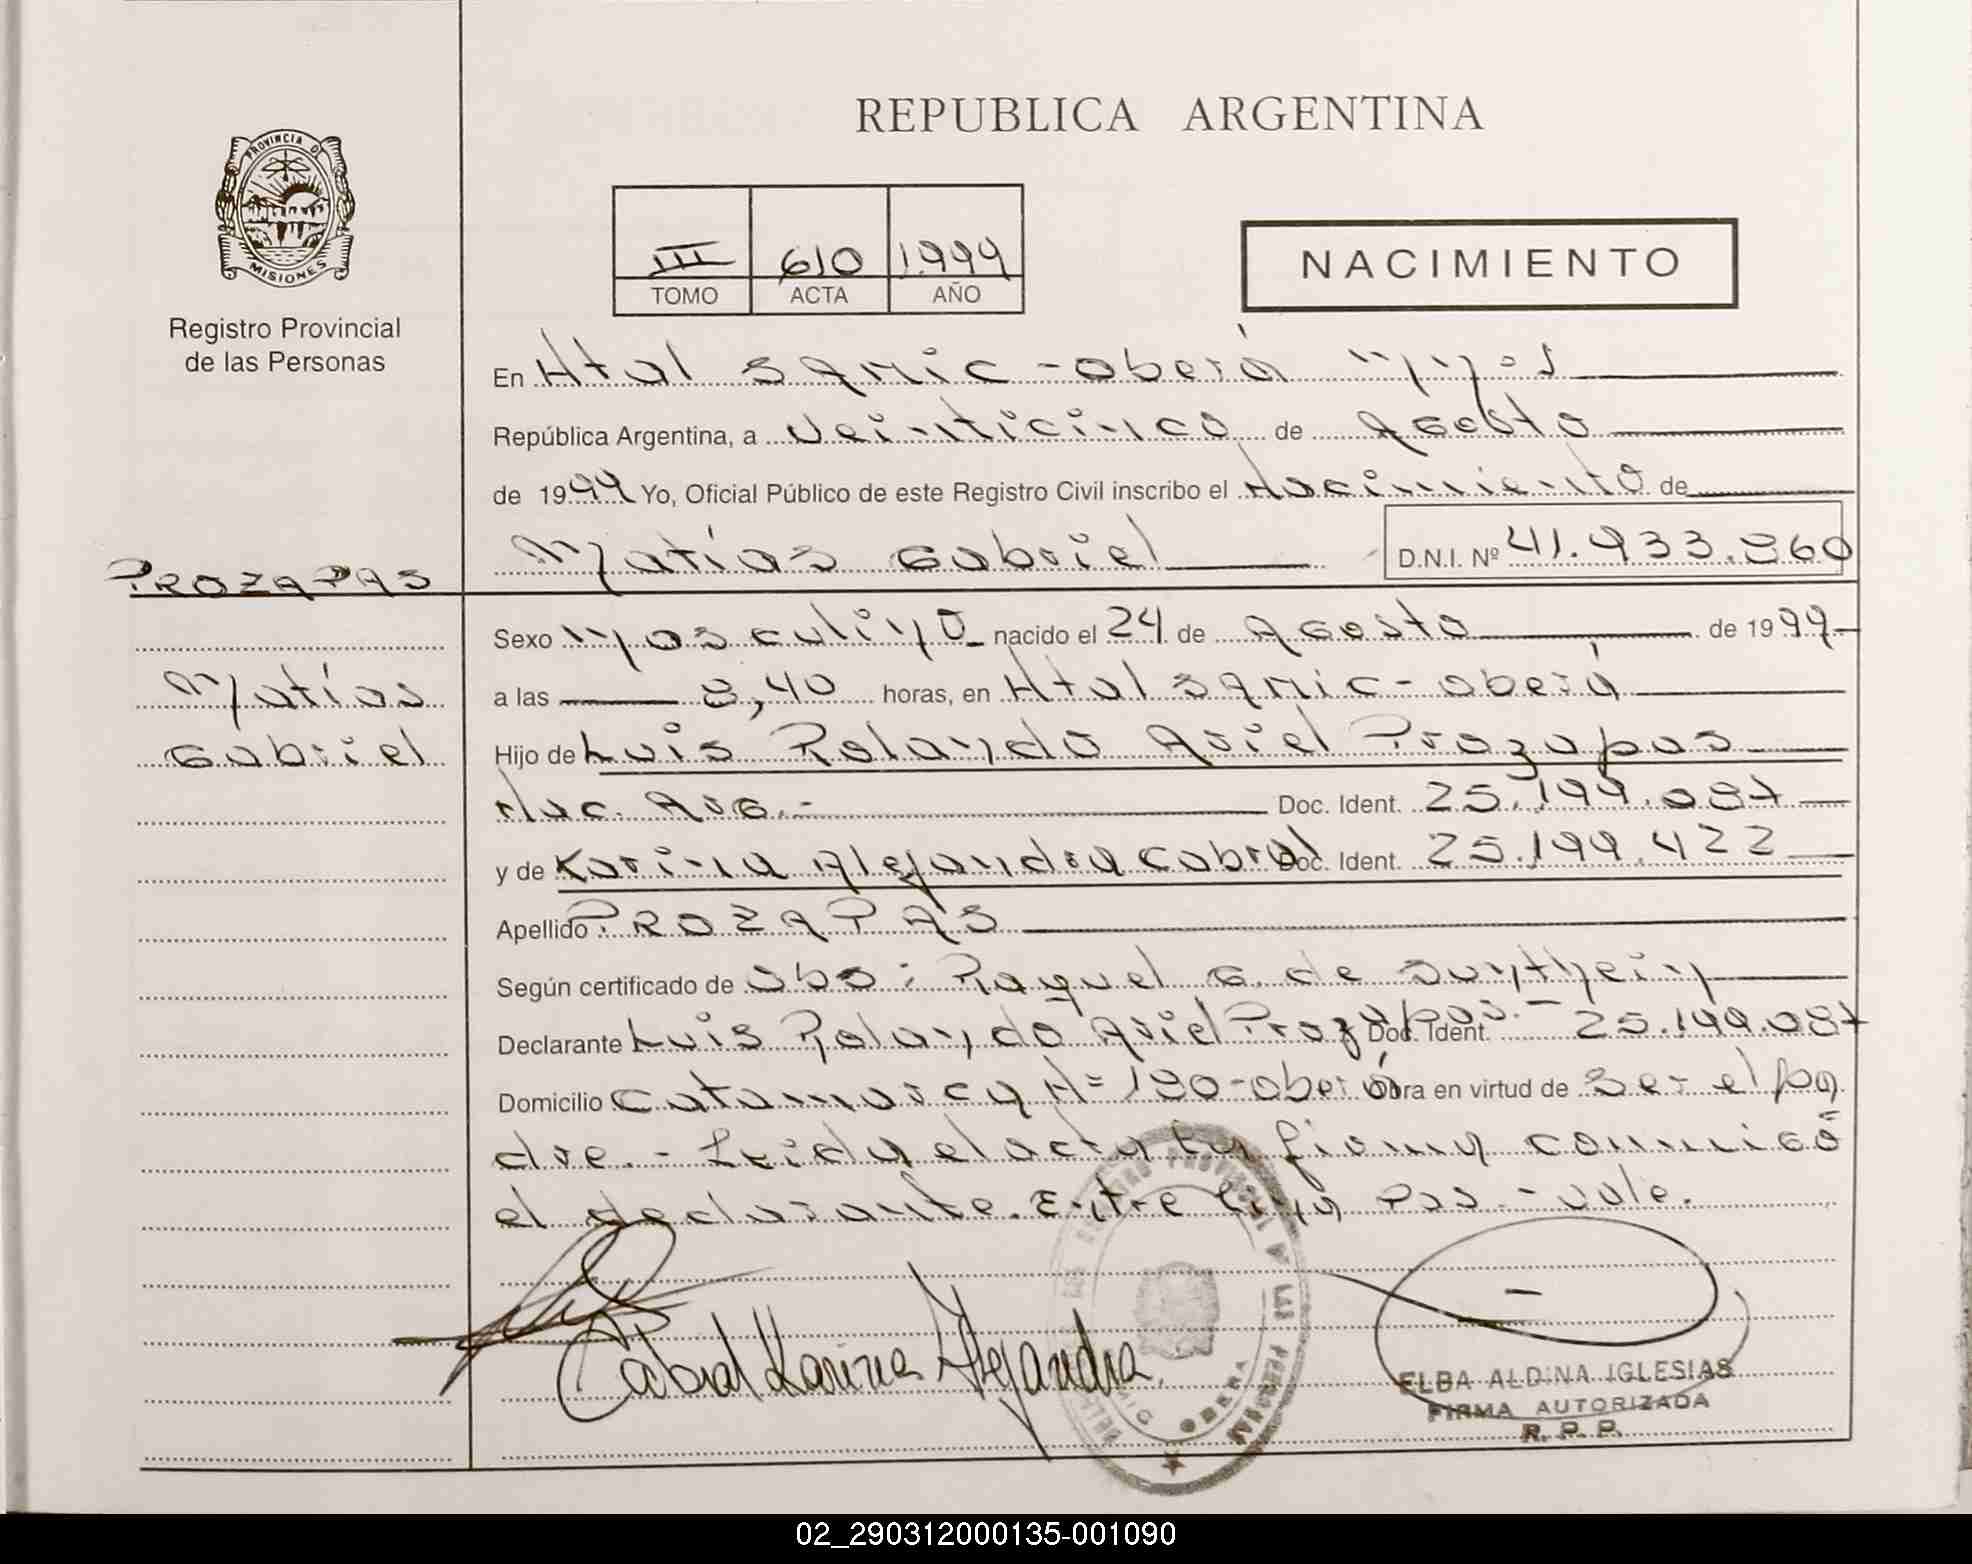 REPUBLICA ARGENTINA
PROVINCIA DE
MISIONES
Registro Provincial
de las Personas
III 610 1.999
TOMO ACTA AÑO
NACIMIENTO
En Htal SAMIC - Oberá Mnes
República Argentina, a Veinticinco de Agosto
de 1999 Yo, Oficial Público de este Registro Civil inscribo el Nacimiento de
Matías Gabriel D.N.I. Nº 41.933.860
PROZAPAS
Matías
Gabriel
Sexo Masculino nacido el 24 de Agosto de 1999
a las 8,40 horas, en Htal SAMIC - Oberá
Hijo de Luis Rolando Ariel Prozapas
Nac. Arg.- Doc. Ident. 25.199.087
y de Karina Alejandra Cabral Doc. Ident. 25.199.422
Apellido PROZAPAS
Según certificado de Obs: Raquel G. de
Declarante Luis Rolando Ariel Prozapas.- Doc. Ident. 25.199.087
Domicilio Catamarca Nº 190 - Oberá Obra en virtud de Ser el pa
dre.- Leída el acta la firma conmigo
el declarante. Entre línea Pas.- Vale.
Cabral Karina Alejandra
REGISTRO PROVINCIAL DE LAS PERSONAS
OBERA
ELBA ALDINA IGLESIAS
FIRMA AUTORIZADA
R. P. P.
02_290312000135-001090